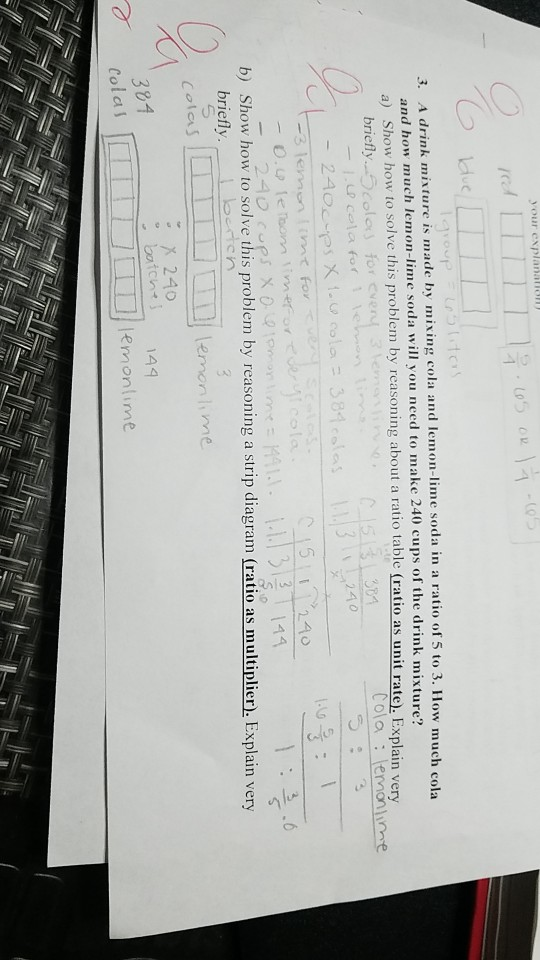 your explanation)
red
5/4 · 65 or 1 1/4 · 65
blue
1 group = 65 liters
3. A drink mixture is made by mixing cola and lemon-lime soda in a ratio of 5 to 3. How much cola
and how much lemon-lime soda will you need to make 240 cups of the drink mixture?
a) Show how to solve this problem by reasoning about a ratio table (ratio as unit rate). Explain very
briefly.
- 5 colas for every 3 lemon lime.
- 1.6 cola for 1 lemon lime.
- 240 cups × 1.6 cola = 384 colas
- 3 lemon lime for every 5 colas.
- 0.6 lemon lime for every 1 cola.
- 240 cups × 0.6 lemonlime = 144 l.l.
C | 5 | 5/3 | 384
l.l. | 3 | 1 | 240
C | 5 | 1 | 240
l.l. | 3 | 3/5 | 144
cola : lemonlime
5 : 3
1.6 5/3 : 1
1 : 3/5 .6
b) Show how to solve this problem by reasoning a strip diagram (ratio as multiplier). Explain very
briefly.
5
colas
3
lemonlime
× 240
384
colas
144
lemonlime